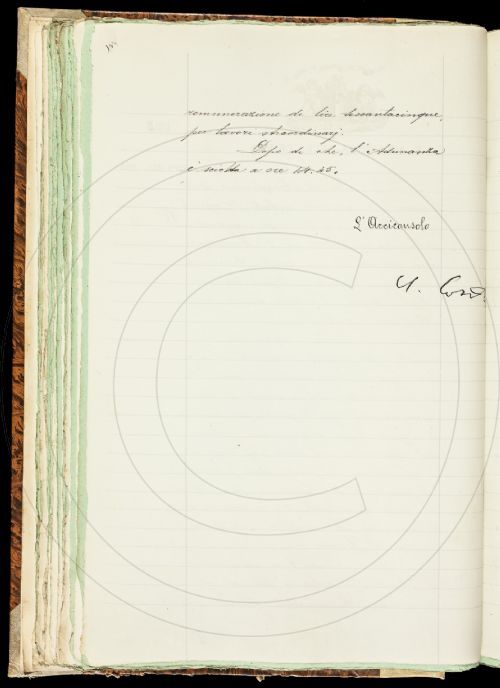 remunerazione di lire sessantacinque,
per lavori straordinarj.
Dopo di che, l'Adunanza
è sciolta a ore 14.45.
L'Arciconsolo